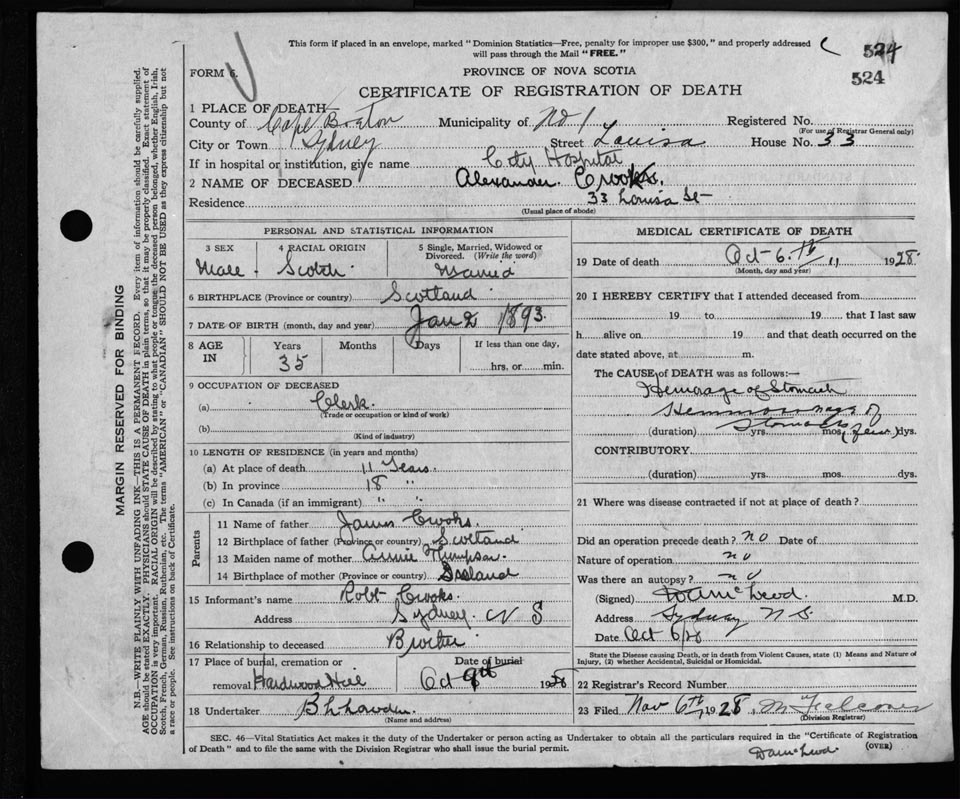 This form if placed in an envelope, marked " Dominion Statistics—Free, penalty for improper use $300," and properly addressed
will pass through the Mail "FREE."
524
524
FORM 6.
PROVINCE OF NOVA SCOTIA
CERTIFICATE OF REGISTRATION OF DEATH
1 PLACE OF DEATH
County of Cape Breton Municipality of No 1 Registered No.
(For use of Registrar General only)
City or Town Sydney Street Louisa House No. 33
If in hospital or institution, give name City Hospital
2 NAME OF DECEASED Alexander Crooks.
Residence 33 Louisa St
(Usual place of abode)
MARGIN RESERVED FOR BINDING
N.B.—WRITE PLAINLY WITH UNFADING INK—THIS IS A PERMANENT RECORD. Every item of information should be carefully supplied.
AGE should be stated EXACTLY. PHYSICIANS should STATE CAUSE OF DEATH in plain terms, so that it may be properly classified. Exact statement of
OCCUPATION is very important. RACIAL ORIGIN will be described by stating to what people or tongue the deceased person belonged, whether English, Irish,
Scotch, French, German, Russian, Ruthenian, etc. The terms "AMERICAN" or "CANADIAN" SHOULD NOT BE USED as they express citizenship but not
a race or people. See instructions on back of Certificate.
PERSONAL AND STATISTICAL INFORMATION
3 SEX 4 RACIAL ORIGIN 5 Single, Married, Widowed or
Divorced. (Write the word)
Male Scotch Married
6 BIRTHPLACE (Province or country) Scotland
7 DATE OF BIRTH (month, day and year) Jan 2 1893
8 AGE IN Years Months Days If less than one day,
35 hrs. or min.
9 OCCUPATION OF DECEASED
(a) Clerk
(Trade or occupation or kind of work)
(b)
(Kind of industry)
10 LENGTH OF RESIDENCE (in years and months)
(a) At place of death 11 Years
(b) In province 18 "
(c) In Canada (if an immigrant) " "
Parents
11 Name of father James Crooks.
12 Birthplace of father (Province or country) Scotland
13 Maiden name of mother Annie
14 Birthplace of mother (Province or country)
15 Informant's name Robt Crooks.
Address Sydney N S
16 Relationship to deceased Brother
17 Place of burial, cremation or Date of burial
removal Hardwood Hill Oct 9th 1928
18 Undertaker
(Name and address)
MEDICAL CERTIFICATE OF DEATH
19 Date of death Oct 6th 1928
(Month, day and year)
20 I HEREBY CERTIFY that I attended deceased from
19 to 19 that I last saw
h alive on 19 and that death occurred on the
date stated above, at m.
The CAUSE of DEATH was as follows:—
Hemorage of Stomach
of
Stomach
(duration) yrs. mos. (few) dys.
CONTRIBUTORY
(duration) yrs. mos. dys.
21 Where was disease contracted if not at place of death?
Did an operation precede death? no Date of
Nature of operation no
Was there an autopsy? no
(Signed) McLeod M.D.
Address Sydney N.S.
Date Oct 6/28
State the Disease causing Death, or in death from Violent Causes, state (1) Means and Nature of
Injury, (2) whether Accidental, Suicidal or Homicidal.
22 Registrar's Record Number
23 Filed Nov 6th 1928 M Falconer
(Division Registrar)
SEC. 46—Vital Statistics Act makes it the duty of the Undertaker or person acting as Undertaker to obtain all the particulars required in the "Certificate of Registration
of Death" and to file the same with the Division Registrar who shall issue the burial permit. (OVER)